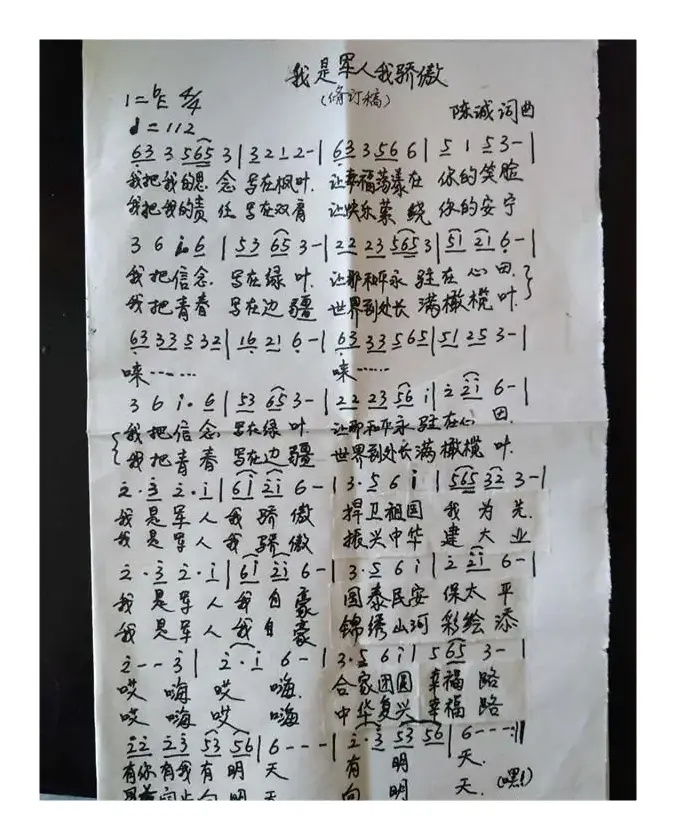 我是军人我骄傲
(修订稿)
1=♭E 4/4
陈诚词曲
♩=112
63 3 565 3 | 3 2 1 2 - | 63 3 56 6 | 5 1 5 3 - |
我把我的思 念 写在枫叶. 让幸福荡漾在 你的笑脸
我把我的责 任 写在双肩 让快乐萦 绕 你的安宁
3 6 i. 6 | 53 65 3 - | 22 23 565 3 | 51 21 6 - |
我把信念. 写在绿叶. 让那和平永 驻在心田.
我把青春 写在边疆 世界到处长 满橄榄叶.
63 33 5 32 | 16 21 6 - | 63 33 565 | 51 25 3 - |
唻…… 唻……
3 6 i. 6 | 53 65 3 - | 22 23 56 i | 2 2i 6 - |
我把信念 写在绿叶 让那和平永 驻在心 田.
我把青春 写在边疆 世界到处长 满橄榄 叶.
2. 3 2. i | 6i 2i 6 - | 3. 5 6 i | 565 32 3 - |
我是军人我骄傲 捍卫祖国 我为先.
我是军人我骄傲 振兴中华 建大业
2. 3 2. i | 6i 2i 6 - | 3. 5 6 i | 2 2i 6 - |
我是军人我自豪 国泰民安 保太平
我是军人我自豪 锦绣山河 彩绘添
2 - - 3 | 2. i 6 - | 3. 5 6 i | 5 65 3 - |
哎 嗨 哎 嗨. 合家团圆 幸福 路
哎 嗨 哎 嗨 中华复兴 幸福 路
22 23 53 56 | 6 - - - | 2. 3 53 56 | 6 - - - :||
有你有我有 明 天 有 明 天.
向 明 天 向 明 天. (嘿!)